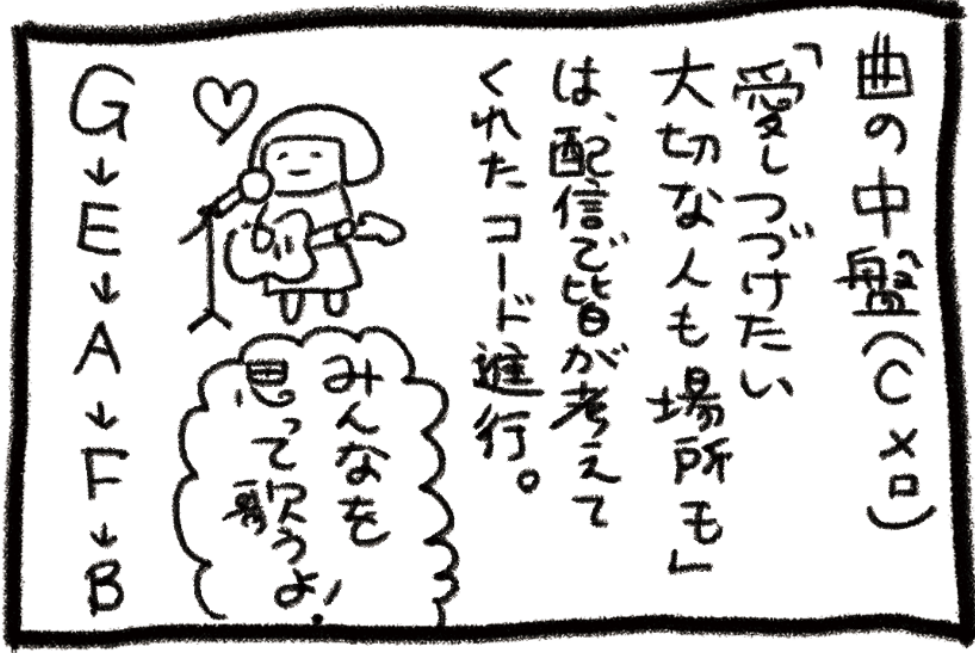 曲の中盤(Cメロ)
「愛しつづけたい
大切な人も場所も」
は、配信で皆が考えて
くれたコード進行。
みんなを
思って歌うよ!
G→E→A→F→B